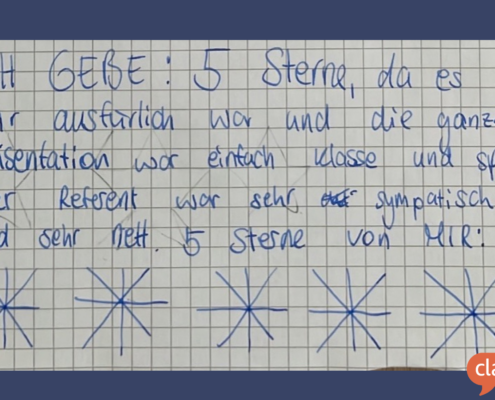 GEBE: 5 Sterne, da es
ausfürlich war und die ganz
sentation war einfach klasse und
Referent war sehr sympatisch
sehr nett. 5 Sterne von MIR:
cla